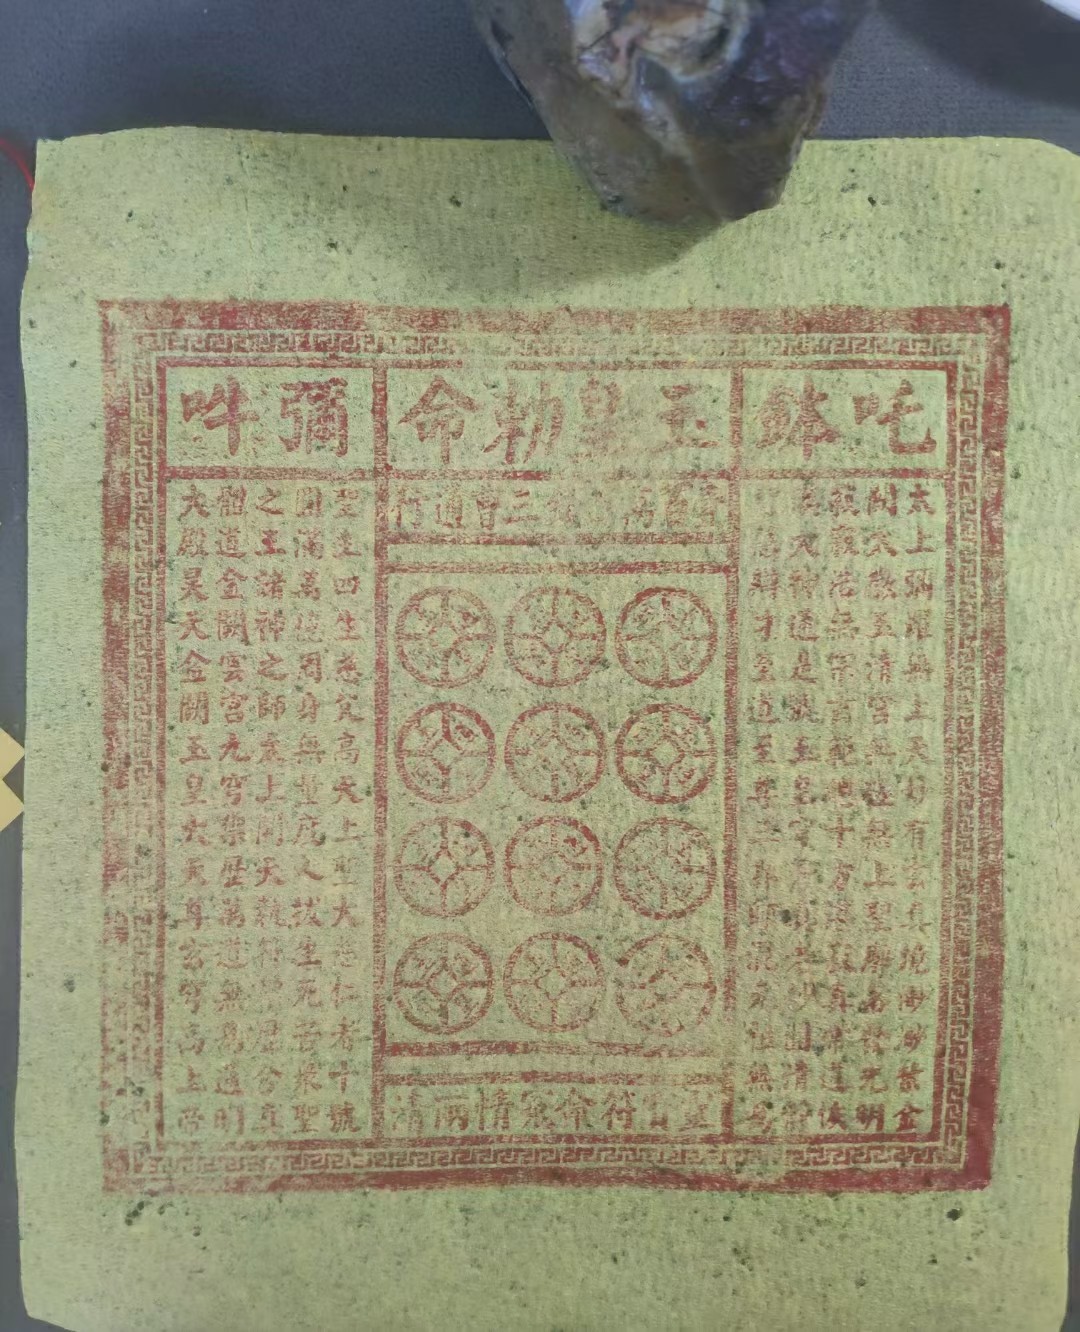 吒鉢
玉皇勅命
彌吽
太上彌羅無上天妙有玄真境渺渺紫金
闕太微玉清宮無極無上聖廓落發光明
寂寂浩無宗玄範總十方湛寂真常道恢
漠大神通是號玉皇穹蒼真老妙圓清靜
智慧辯才至道至尊三界師混元祖無
百萬 三曹通行
靈官符命冤情兩清
聖主四生慈父高天上聖大慈仁者十號
圓滿萬德周身無量度人拔生死苦衆聖
之王諸神之師 上開天執符御曆含真
體道金闕雲宮九穹禦歷萬道無為通明
大殿昊天金闕玉皇大天尊玄穹高上帝